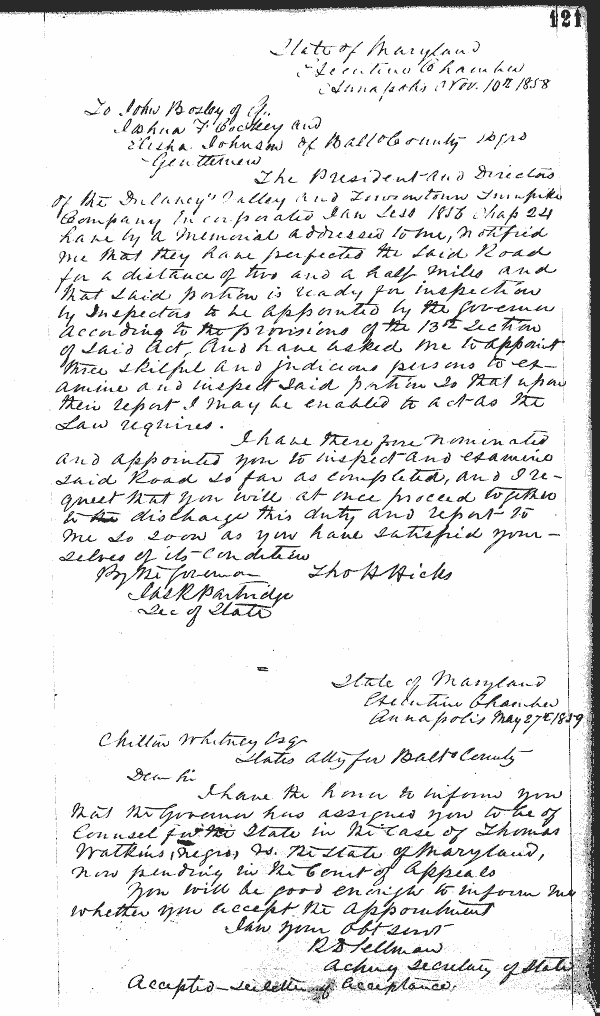 121
State of Maryland
Executive Chamber
Annapolis Nov. 10th 1858
To John Bosley of
Joshua F Cockey and
Elisha Johnson of Balto County
Gentlemen
The President and Directors
of the Dulaney's Valley and Towsontown Turnpike
Company Incorporated Jan Sess 1856 Chap 24
have by a memorial addressed to me, notified
me that they have perfected the said Road
for a distance of two and a half miles and
that said portion is ready for inspection
by Inspectors to be appointed by the Governor
according to the provisions of the 13th section
of said Act, And have asked me to appoint
three skilful and judicious persons to ex-
amine and inspect said portion so that upon
their report I may be enabled to act as the
Law requires.
I have therefore nominated
and appointed you to inspect and examine
said Road so far as completed, and I re-
quest that you will at once proceed together
to the discharge this duty and report to
me so soon as you have satisfied your-
selves of its condition
By the Governor Tho H Hicks
Jas R Partridge
Sec of State
=
State of Maryland
Executive Chamber
Annapolis May 27th 1859
Whitney Esqr
States Atty for Balto County
Dear Sir
I have the honor to inform you
that the Governor has assigned you to be of
Counsel for the State in the case of Thomas
Watkins, negro, vs. the State of Maryland,
now pending in the Court of Appeals
You will be good enough to inform me
whether you accept the appointment
I am your obt servt
Sellman
Acting Secretary of State
Accepted - see letter of acceptance.